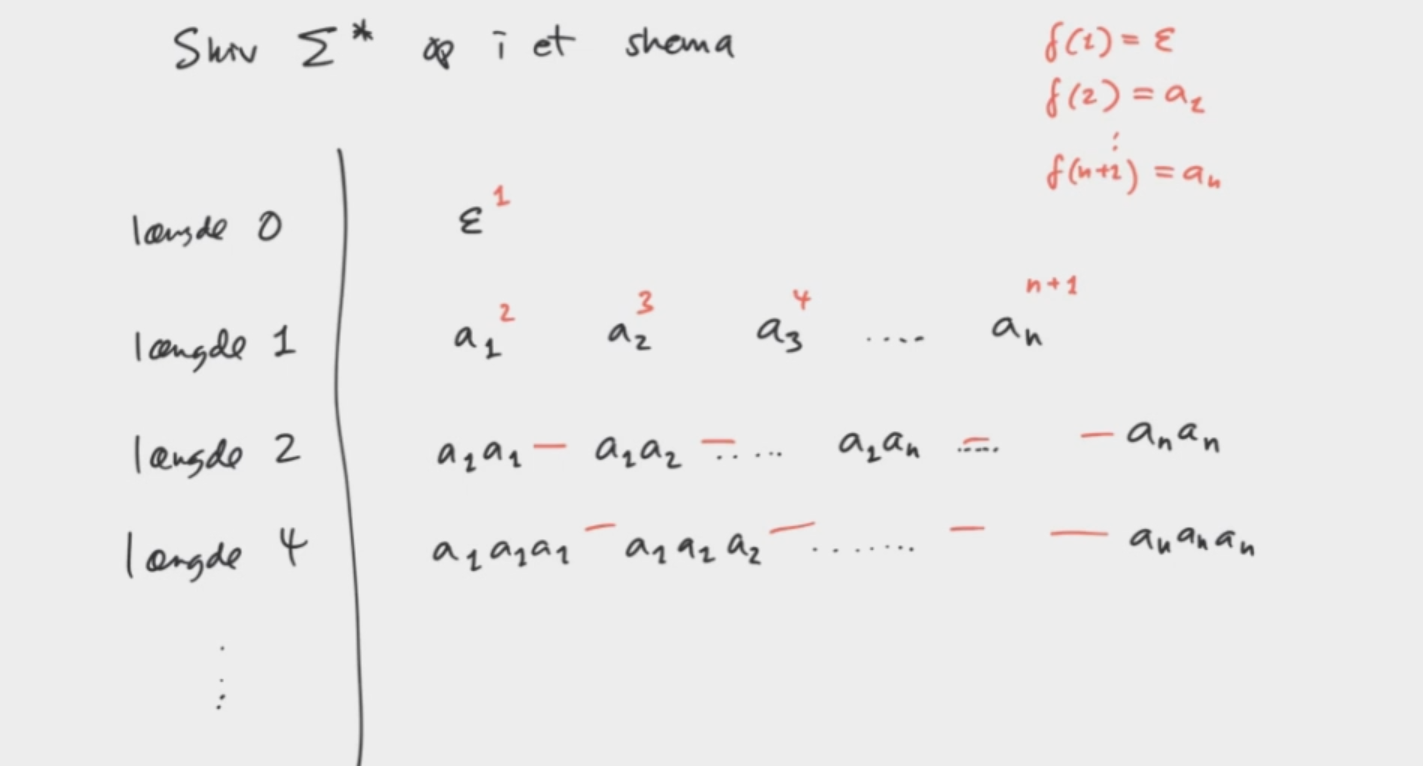 Skriv Σ* op i et skema
f(1) = ε
f(2) = a₁
⋮
f(n+1) = aₙ
længde 0 ε 1
længde 1 a₁ 2 a₂ 3 a₃ 4 .... aₙ n+1
længde 2 a₁a₁ — a₁a₂ — ..... a₁aₙ — ..... — aₙaₙ
længde 4 a₁a₁a₁ — a₁a₁a₂ — ....... — — aₙaₙaₙ
⋮